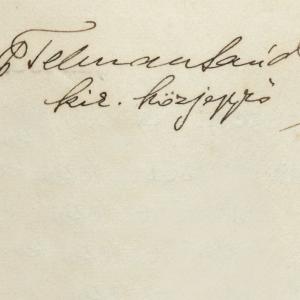 Felman Sánd
kir. közjegyző